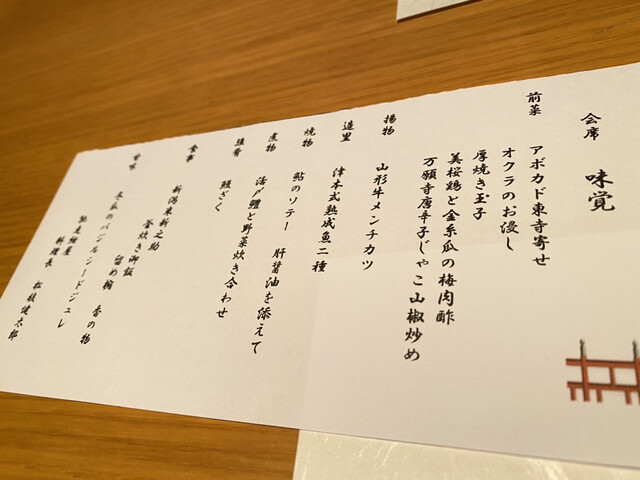 会席 味覚
前菜 アボカド東寺寄せ
オクラのお浸し
厚焼き玉子
美桜鶏と金糸瓜の梅肉酢
万願寺唐辛子じゃこ山椒炒め
揚物 山形牛メンチカツ
造里 津本式熟成魚二種
焼物 鮎のソテー 肝醤油を添えて
煮物 活〆鱧と野菜炊き合わせ
強肴 鰻ざく
食事 新潟米新之助
釜炊き御飯 留め椀 香の物
甘味 冬瓜のバジルシードジュレ
馳走紺屋
料理長 松枝健太郎